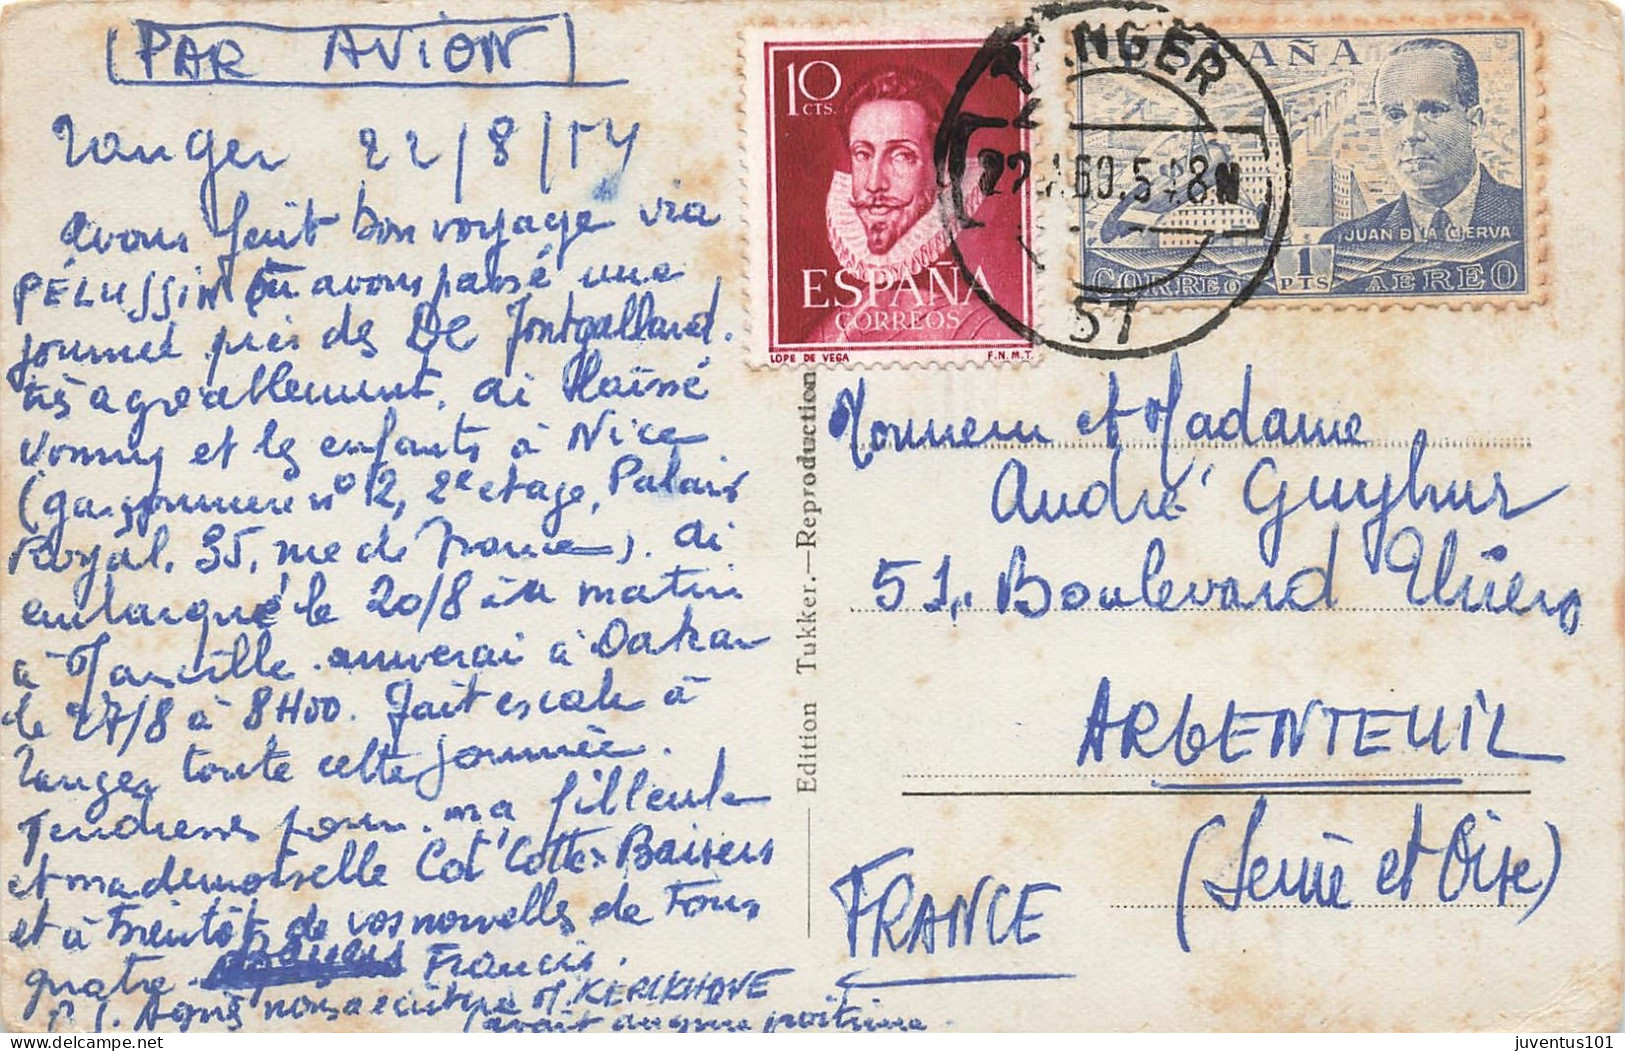 PAR AVION
Tanger 22/8/54
Avons fait bon voyage via
PÉLUSSIN où avons passé une
journée près des De Fontgalland.
très agréablement, ai laissé
Vonny et les enfants à Nice
(garçonnière n° 12, 2e etage, Palais
royal, 35, rue de France). Ai
embarqué le 20/8 au matin
à Marseille. arriverai à Dakar
le 27/8 à 8H00. Fait escale à
Tanger toute cette journée.
Tendresses pour ma filleule
et mademoiselle Cot'Cotte. Baisers
et à bientôt de vos nouvelles de Tous
quatre. Francis.
P.S. Agnès nous a écrit M. KERCKHOVE
(avait angine poitrine.
10 CTS.
ESPAÑA
CORREOS
LOPE DE VEGA F.N.M.T.
TANGER
57
ESPAÑA
JUAN DE LA CIERVA
1 PTS
CORREO AEREO
Edition Tukker.—Reproduction
Monsieur et Madame
André Guyhur
51, Boulevard Thiers
ARGENTEUIL
(Seine et Oise)
FRANCE
juventus101